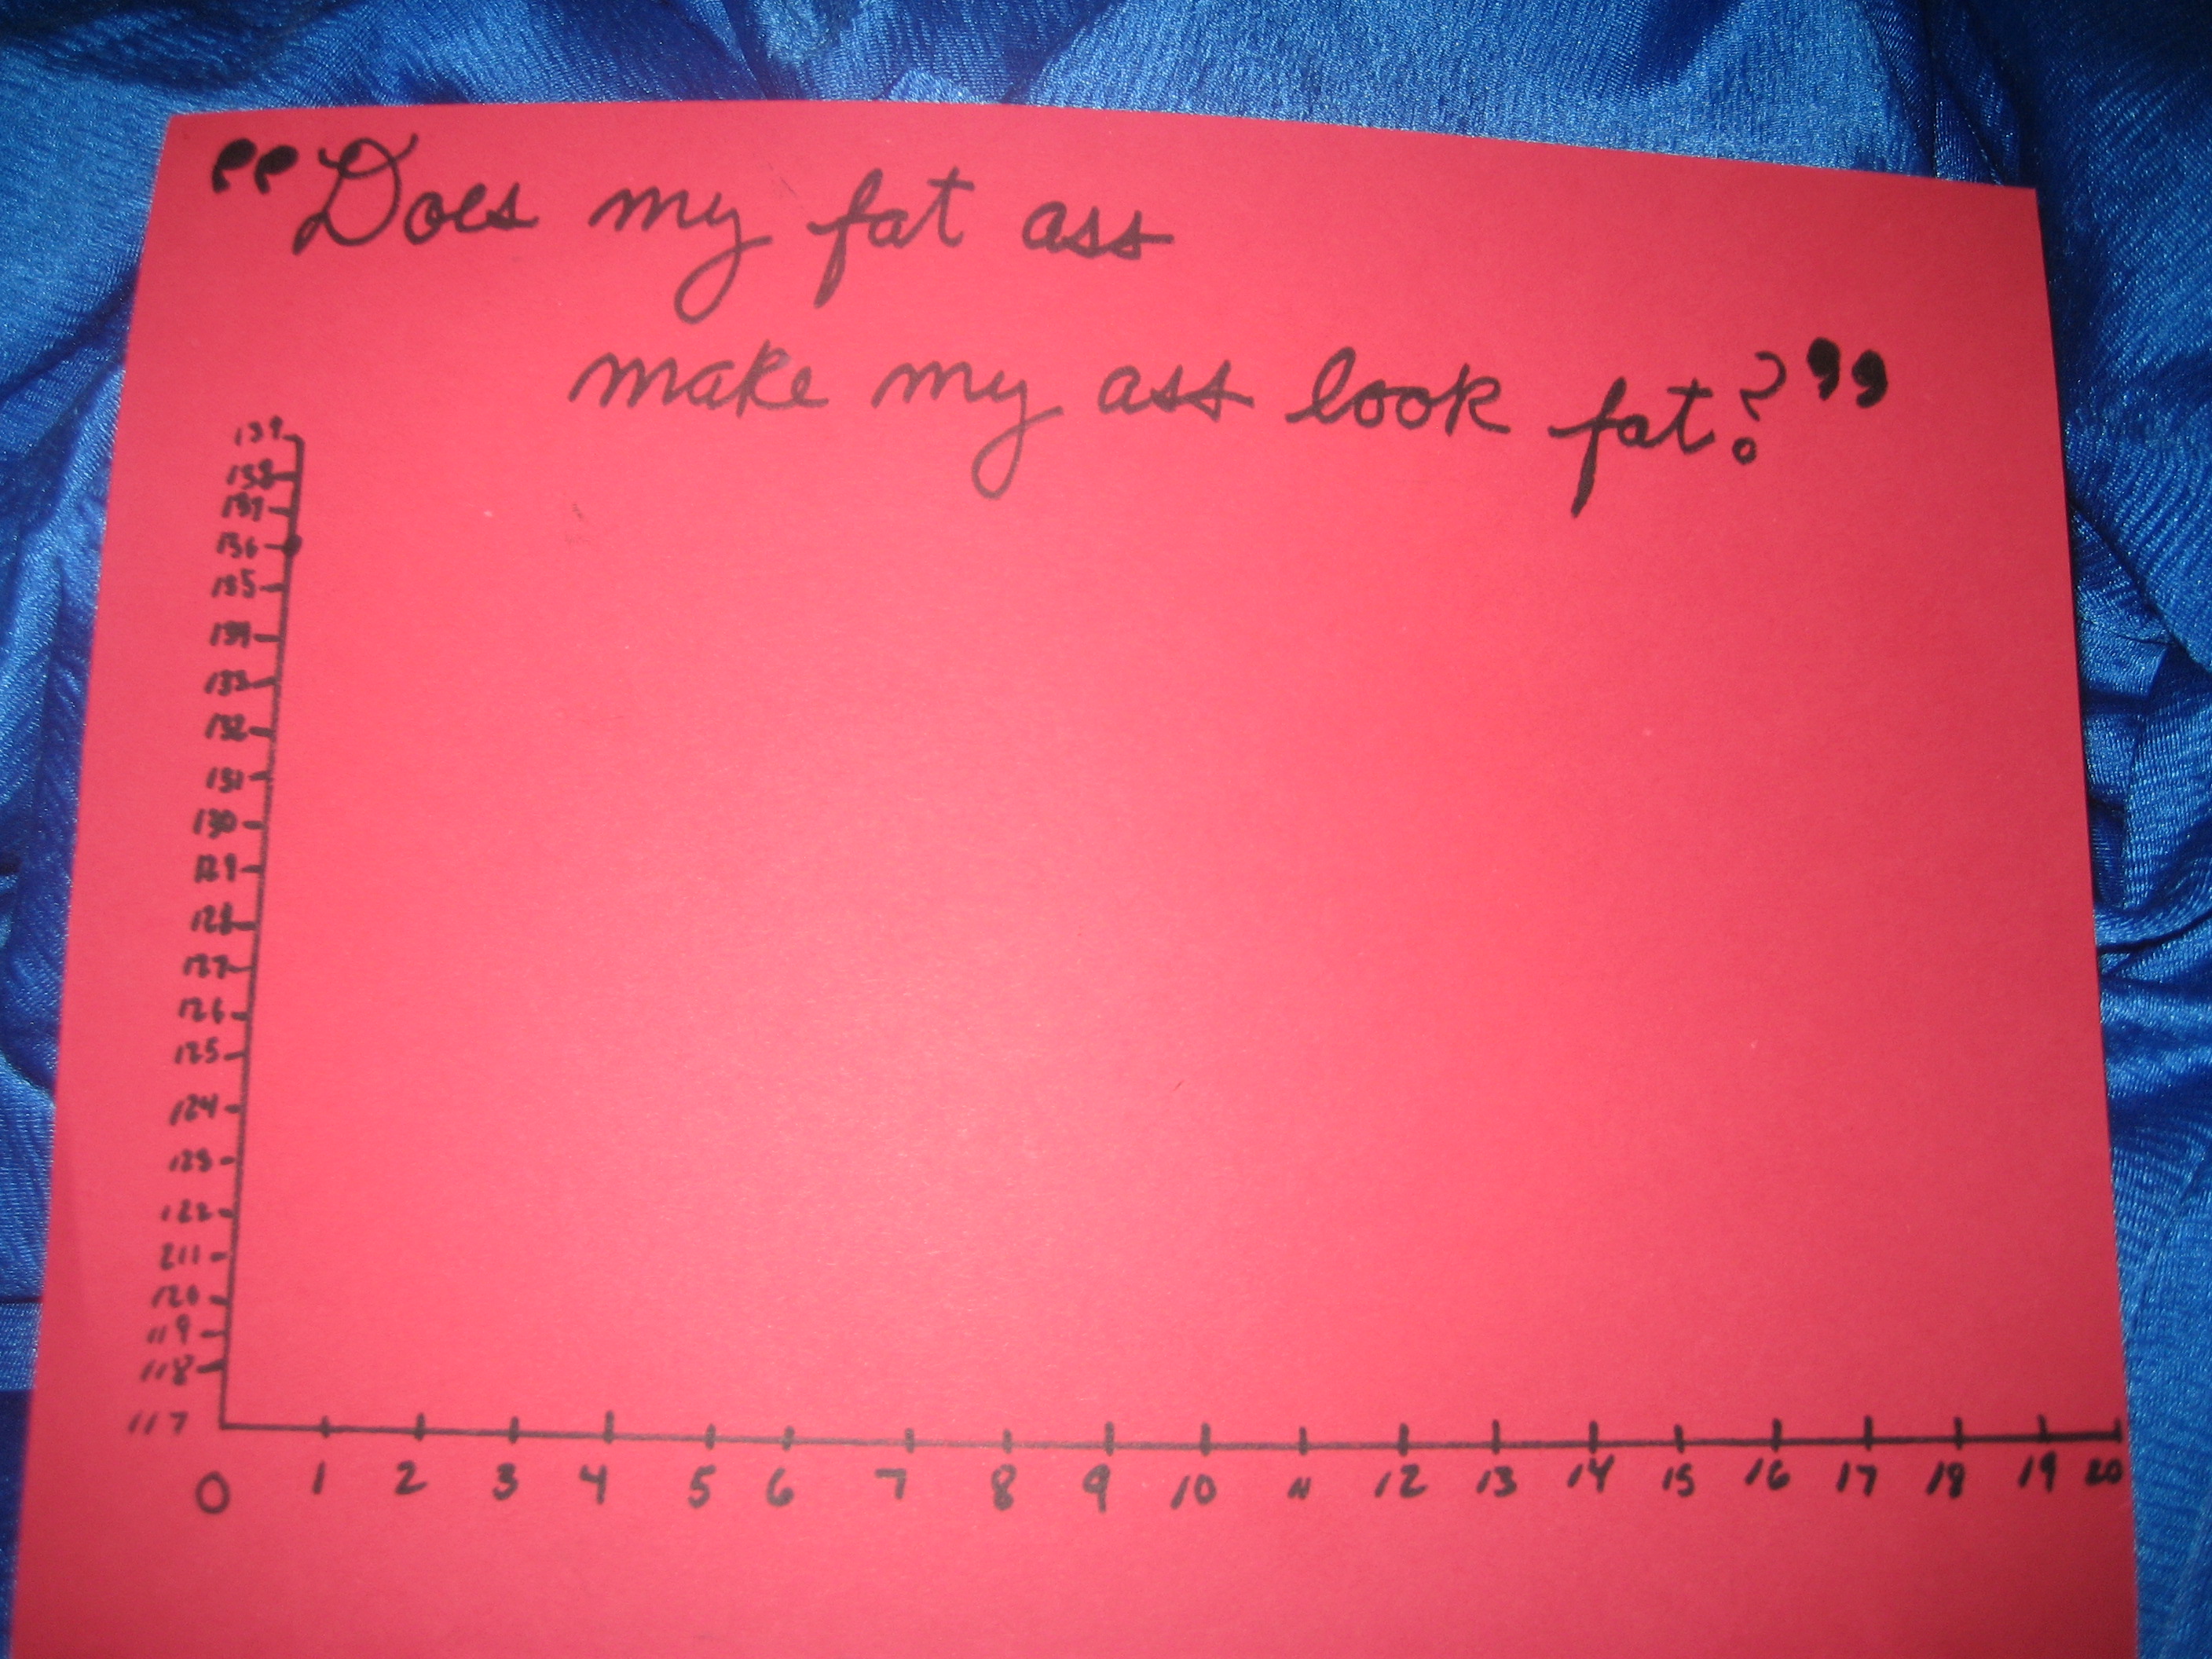 "Does my fat ass
make my ass look fat?"
139
138
137
136
135
134
133
132
131
130
129
128
127
126
125
124
123
122
211
120
119
118
117
0 1 2 3 4 5 6 7 8 9 10 11 12 13 14 15 16 17 18 19 20